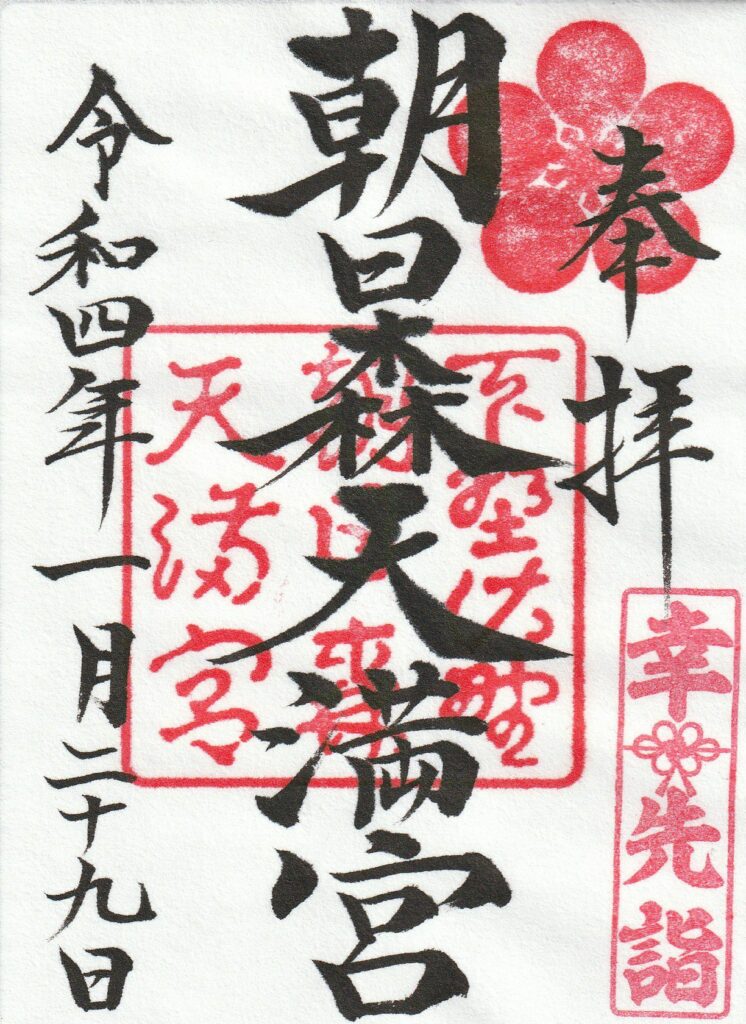 奉拝
幸先詣
朝日森天満宮
下野佐野
朝日森
天満宮
令和四年一月二十九日